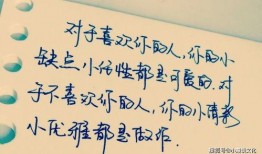 对于喜欢你的人,你的小
缺点,小任性都是可爱的.对
于不喜欢你的人,你的小情都
小优雅都是做作.